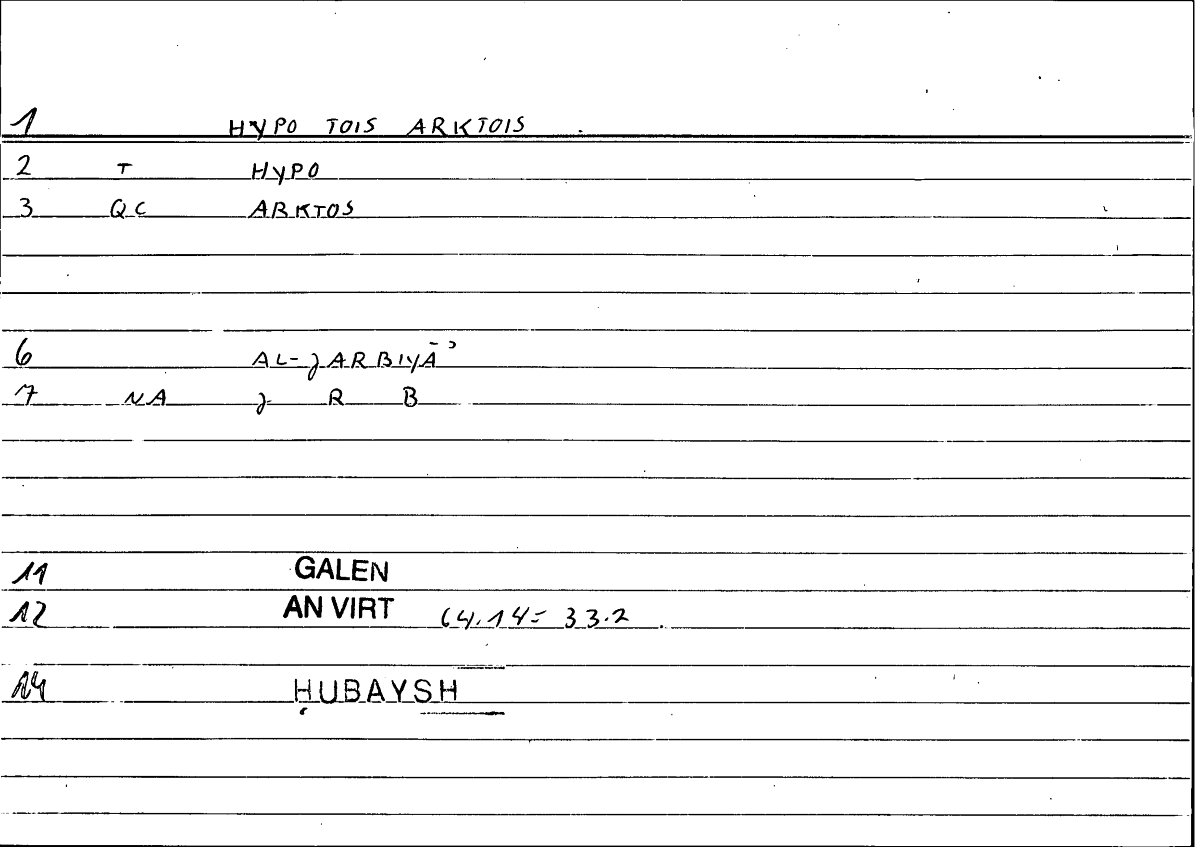 1 HYPO TOIS ARKTOIS
2 T HYPO
3 QC ARKTOS
6 AL-ǧARBIYĀʾ
7 NA ǧ R B
11 GALEN
12 AN VIRT 64.14= 33.2
14 ḤUBAYSH